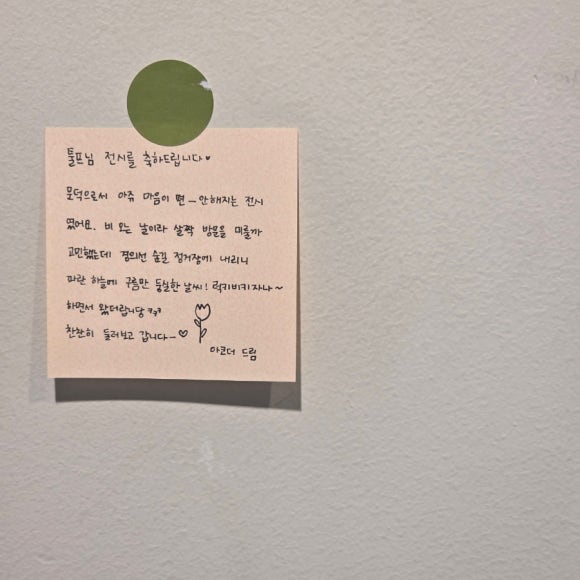 툴프님 전시를 축하드립니다♥
문덕으로써 아쥬 마음이 편—안해지는 전시
였어요. 비 오는 날이라 살짝 방문을 미룰까
고민했는데 경의선 숲길 정거장에 내리니
파란 하늘에 구름만 둥실한 날씨! 럭키비키자나~
하면서 왔더랍니당 ㅋㅋㅋ
찬찬히 둘러보고 갑니다—♡
아코더 드림